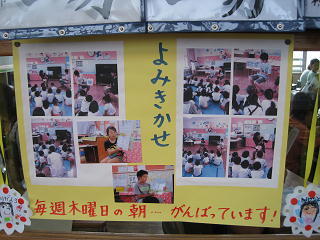 よみきかせ
毎週木曜日の朝……がんばっています!